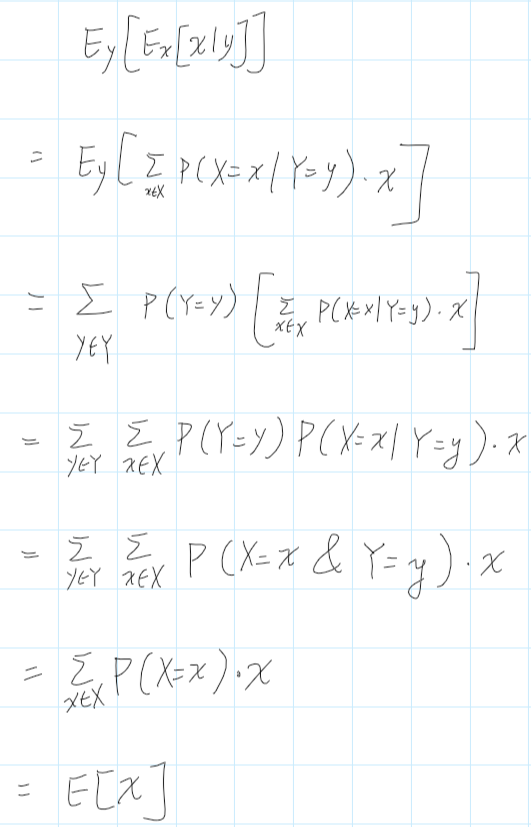 E_y[E_x[x|y]]
= E_y[Σ_{x∈X} P(X=x|Y=y)·x]
= Σ_{y∈Y} P(Y=y)[Σ_{x∈X} P(X=x|Y=y)·x]
= Σ_{y∈Y} Σ_{x∈X} P(Y=y)P(X=x|Y=y)·x
= Σ_{y∈Y} Σ_{x∈X} P(X=x & Y=y)·x
= Σ_{x∈X} P(X=x)·x
= E[x]